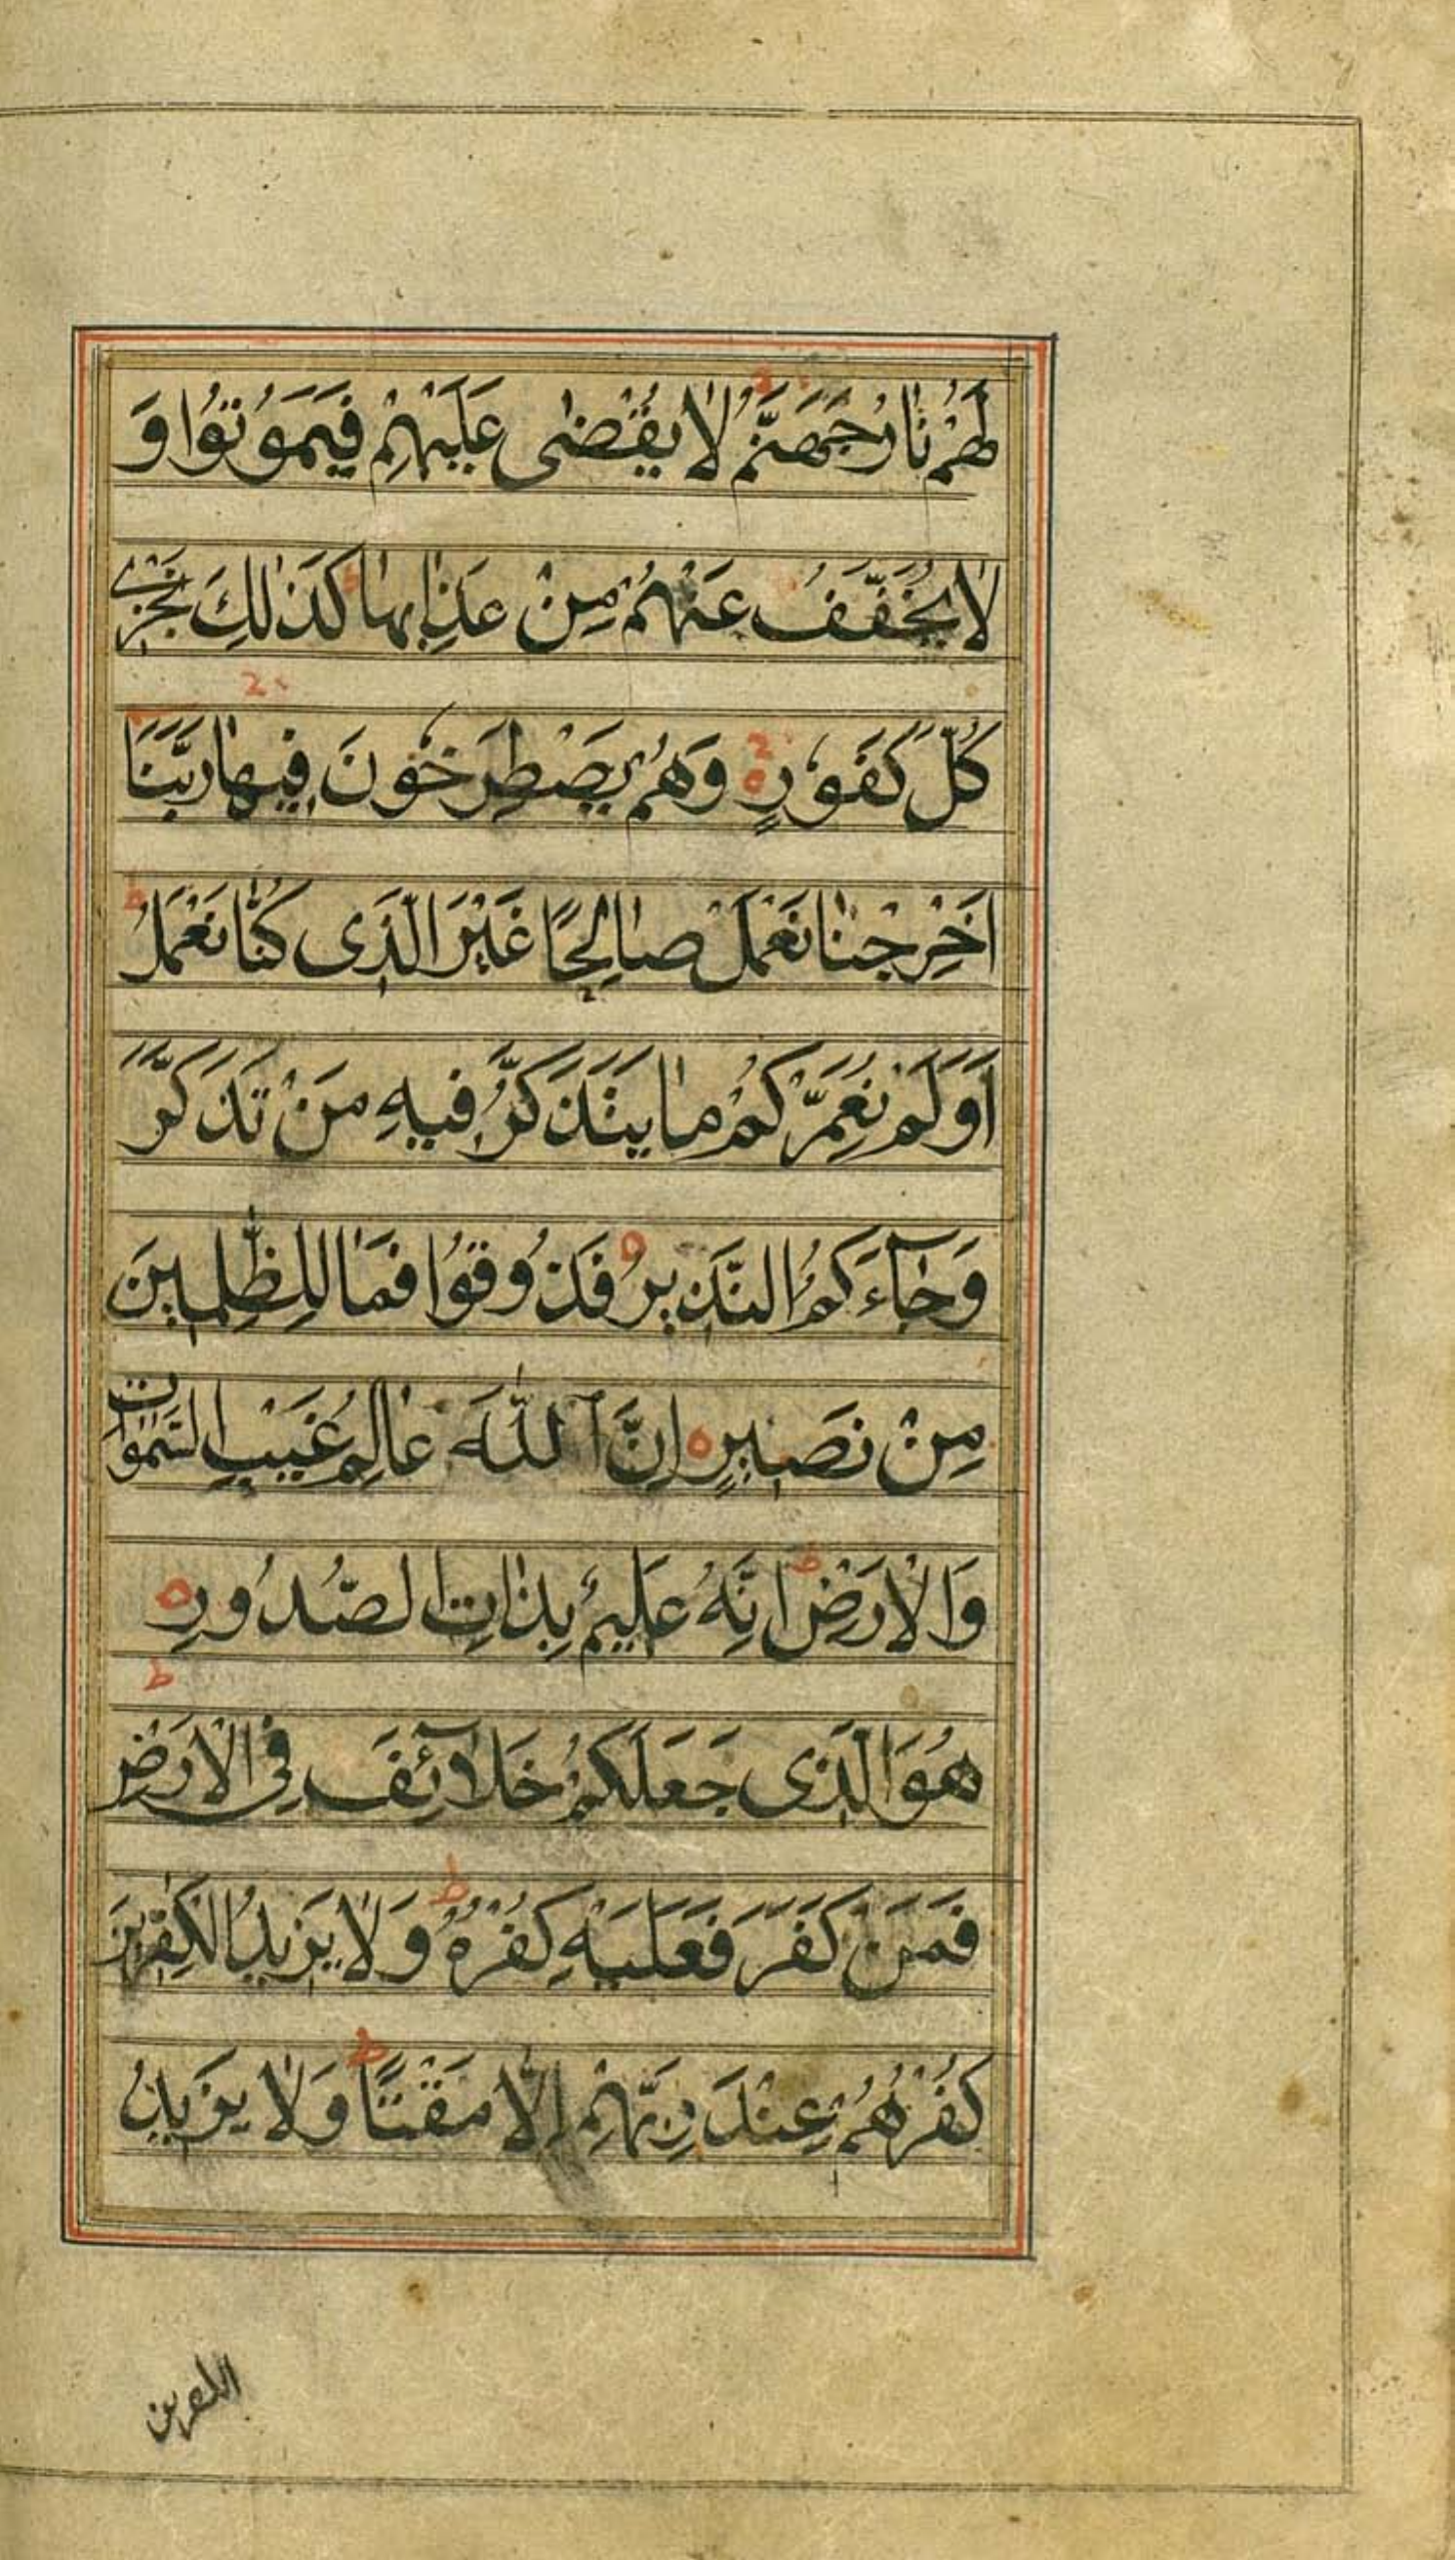 لَهُمْ نَارُ جَهَنَّمَ لَا يُقْضٰى عَلَيْهِمْ فَيَمُوتُوا وَ
لَا يُخَفَّفُ عَنْهُمْ مِنْ عَذَابِهَا ط كَذٰلِكَ نَجْزِي
كُلَّ كَفُورٍ ه وَهُمْ يَصْطَرِخُونَ فِيهَا رَبَّنَا
اَخْرِجْنَا نَعْمَلْ صَالِحًا غَيْرَ الَّذِى كُنَّا نَعْمَلُ ط
اَوَلَمْ نُعَمِّرْكُمْ مَا يَتَذَكَّرُ فِيهِ مَنْ تَذَكَّرَ
وَجَآءَكُمُ النَّذِيرُ ه فَذُوقُوا فَمَا لِلظّٰلِمِينَ
مِنْ نَصِيرٍ ه اِنَّ اللّٰهَ عَالِمُ غَيْبِ السَّمٰوَاتِ
وَالْاَرْضِ ط اِنَّهُ عَلِيمٌ بِذَاتِ الصُّدُورِ ه
هُوَ الَّذِى جَعَلَكُمْ خَلَآئِفَ فِى الْاَرْضِ ط
فَمَنْ كَفَرَ فَعَلَيْهِ كُفْرُهُ ط وَلَا يَزِيدُ الْكٰفِرِينَ
كُفْرُهُمْ عِنْدَ رَبِّهِمْ اِلَّا مَقْتًا ط وَلَا يَزِيدُ
الكفرين